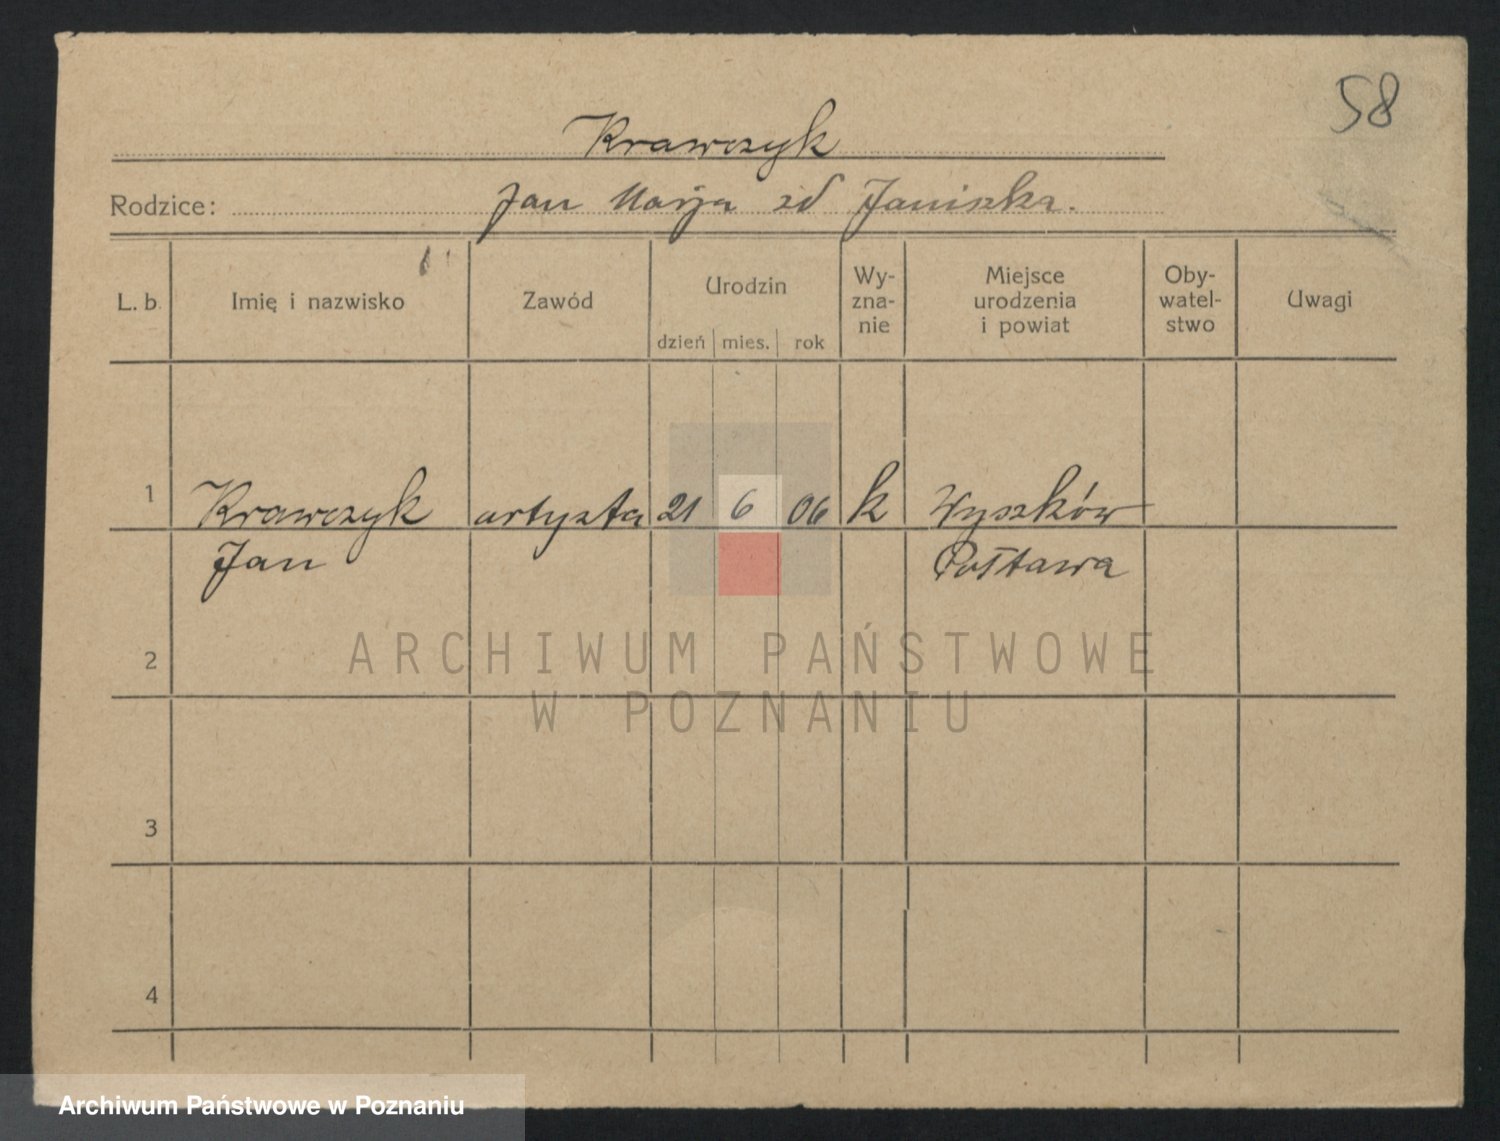 58
Krawczyk
Rodzice: Jan Marja zd Janiszka.
L. b. Imię i nazwisko Zawód Urodzin dzień mies. rok Wy-zna-nie Miejsce urodzenia i powiat Oby-watel-stwo Uwagi
1 Krawczyk artysta 21 6 06 k Wyszków
Jan Połtawa
2
ARCHIWUM PAŃSTWOWE
W POZNANIU
3
4
Archiwum Państwowe w Poznaniu